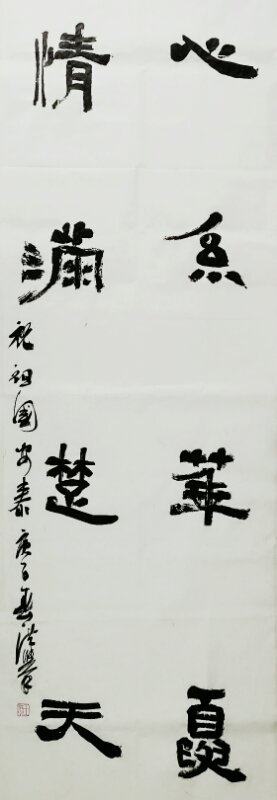 心系華夏
情滿楚天
祝祖國安泰庚子春